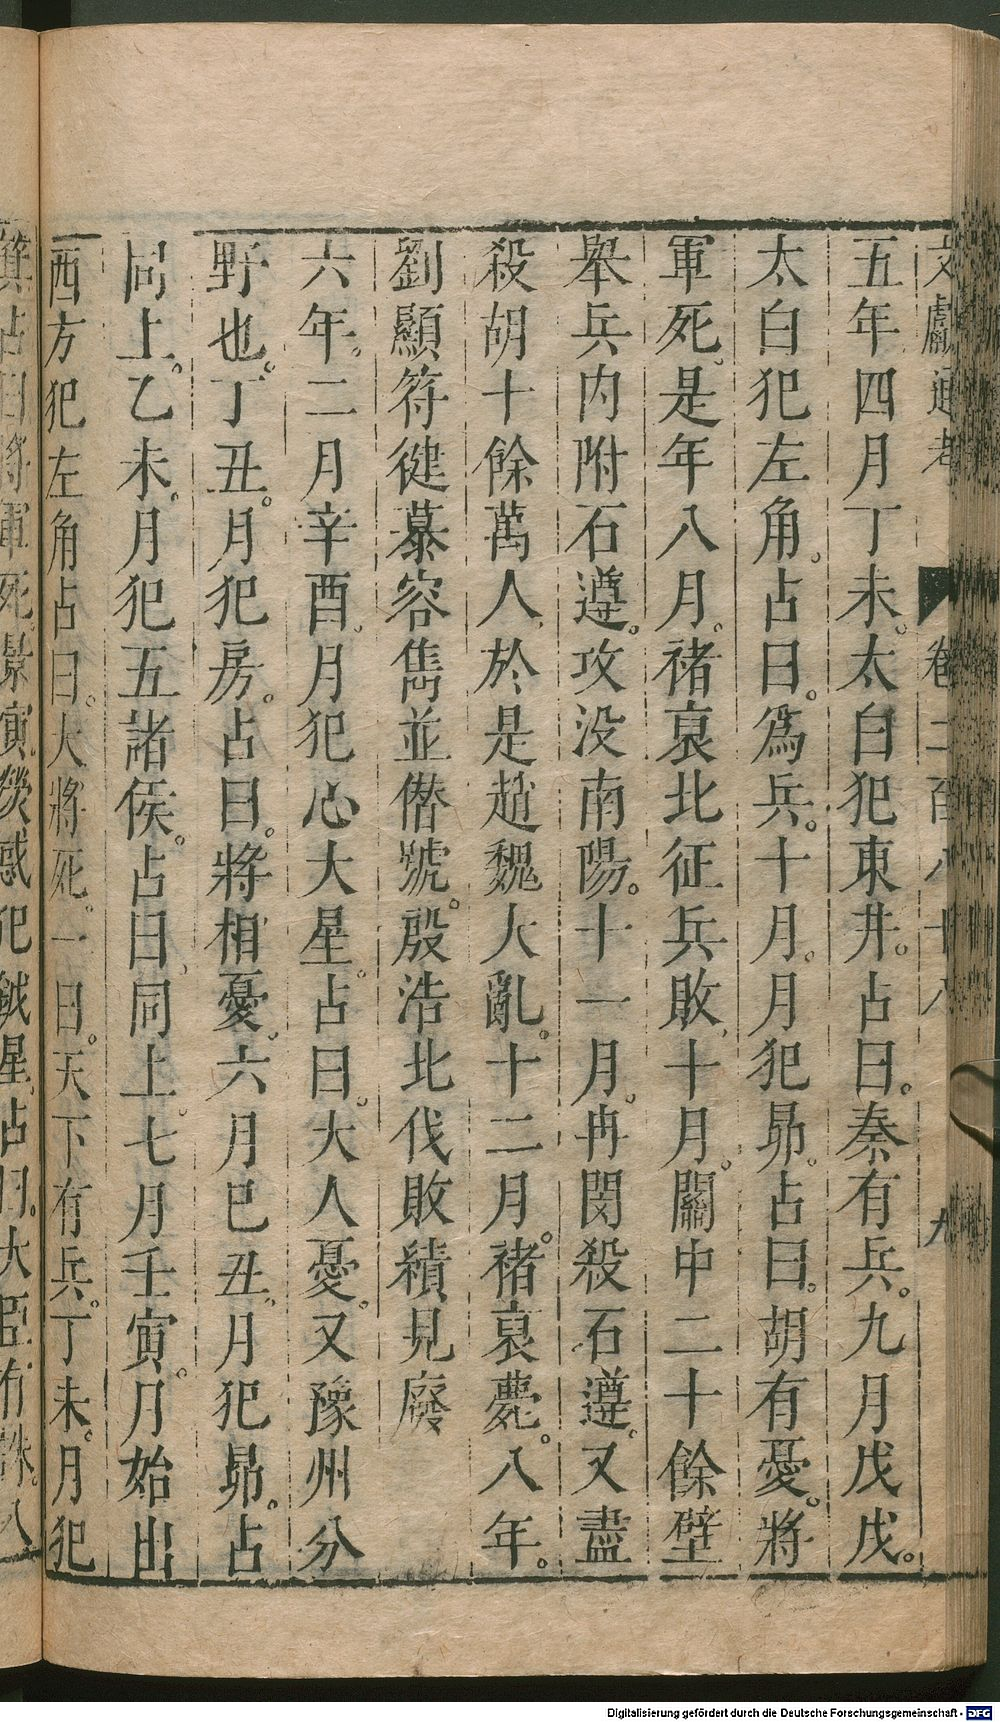 文獻通考 卷二百八十八 九
五年四月丁未。太白犯東井。占曰。秦有兵。九月戊戌。
太白犯左角。占曰。爲兵。十月。月犯昴。占曰。胡有憂。將
軍死。是年八月。褚裒北征兵敗。十月。關中二十餘壁
舉兵内附石遵。攻没南陽。十一月。冉閔殺石遵。又盡
殺胡十餘萬人。於是趙魏大亂。十二月。褚裒薨。八年。
劉顯苻健慕容雋並僭號。殷浩北伐敗績見廢
六年。二月辛酉。月犯心大星。占曰。大人憂。又豫州分
野也。丁丑。月犯房。占曰。將相憂。六月巳丑。月犯昴。占
同上。乙未。月犯五諸侯。占曰。同上。七月壬寅。月始出
西方犯左角占曰。大將死。一曰。天下有兵。丁未。月犯
箕占曰將軍死。景寅。熒惑犯鉞星。占曰。大臣有誅。八
Digitalisierung gefördert durch die Deutsche Forschungsgemeinschaft - DFG